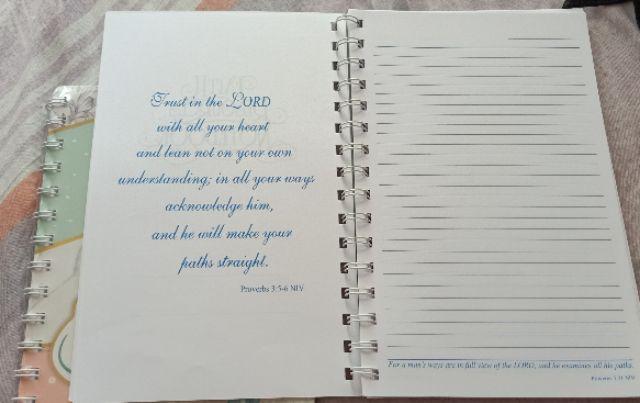 Trust in the LORD
with all your heart
and lean not on your own
understanding; in all your ways
acknowledge him,
and he will make your
paths straight.
Proverbs 3:5-6 NIV
For a man's ways are in full view of the LORD, and he examines all his paths.
Proverbs 5:21 NIV